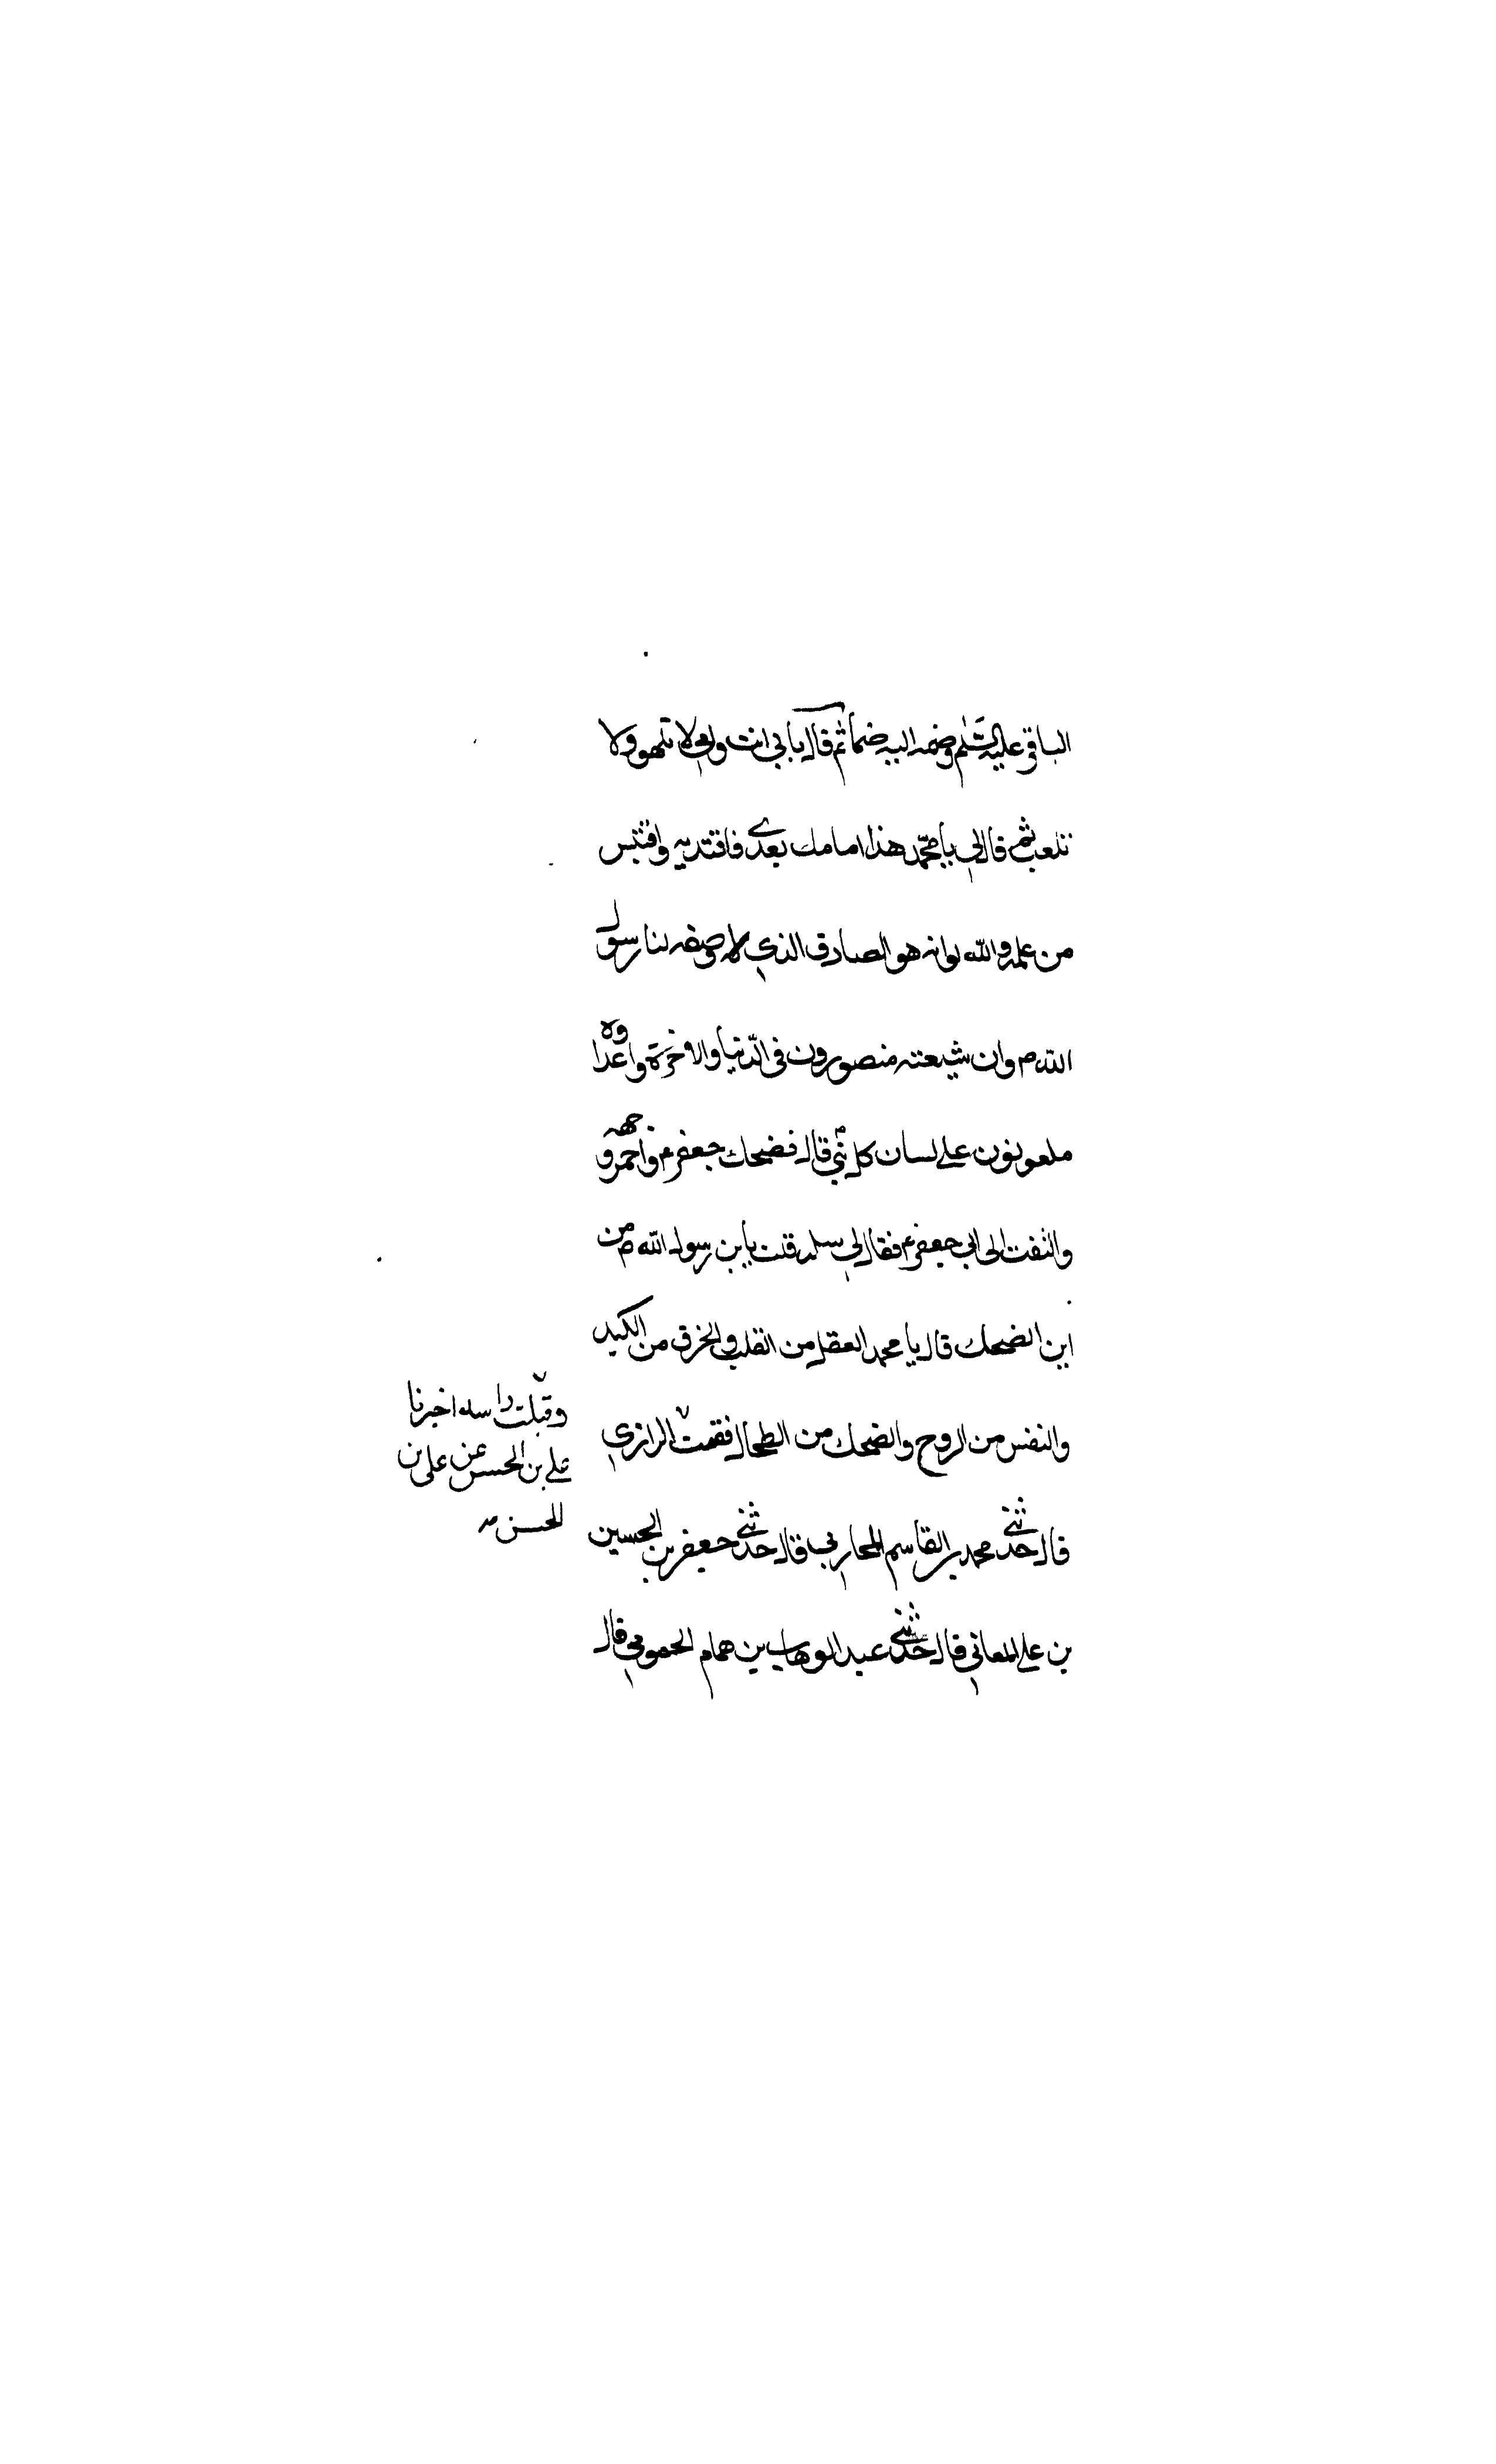 الباقر عليه السلم وضمه اليه ضما ثم قال بابي انت وامي لا تلهو ولا
تلعب ثم قال لي يا محمد هذا امامك بعدي فاقتد به واقتبس
من علمه والله انه هو الصادق الذي وصفه لنا رسول
الله ص وان شيعته منصورون في الدنيا والاخرة واعداوه
ملعونون على لسان كل نبي قال فضحك جعفر ع واحمر وجهه
والتفت الى ابي جعفر ع فقال لي سله قلت يابن رسول الله ص من
اين الضحك قال يا محمد العقل من القلب والخرق من الكبد
والنفس من الروح والضحك من الطحال فقمت الرازي
وقبلت راسه اخبرنا
علي بن الحسن عن علي بن
الحسن
قال حدثني محمد بن القاسم المحاربي قال حدثني جعفر بن الحسين
بن علي المعاني قال حدثني عبد الوهاب بن همام الحموي قال